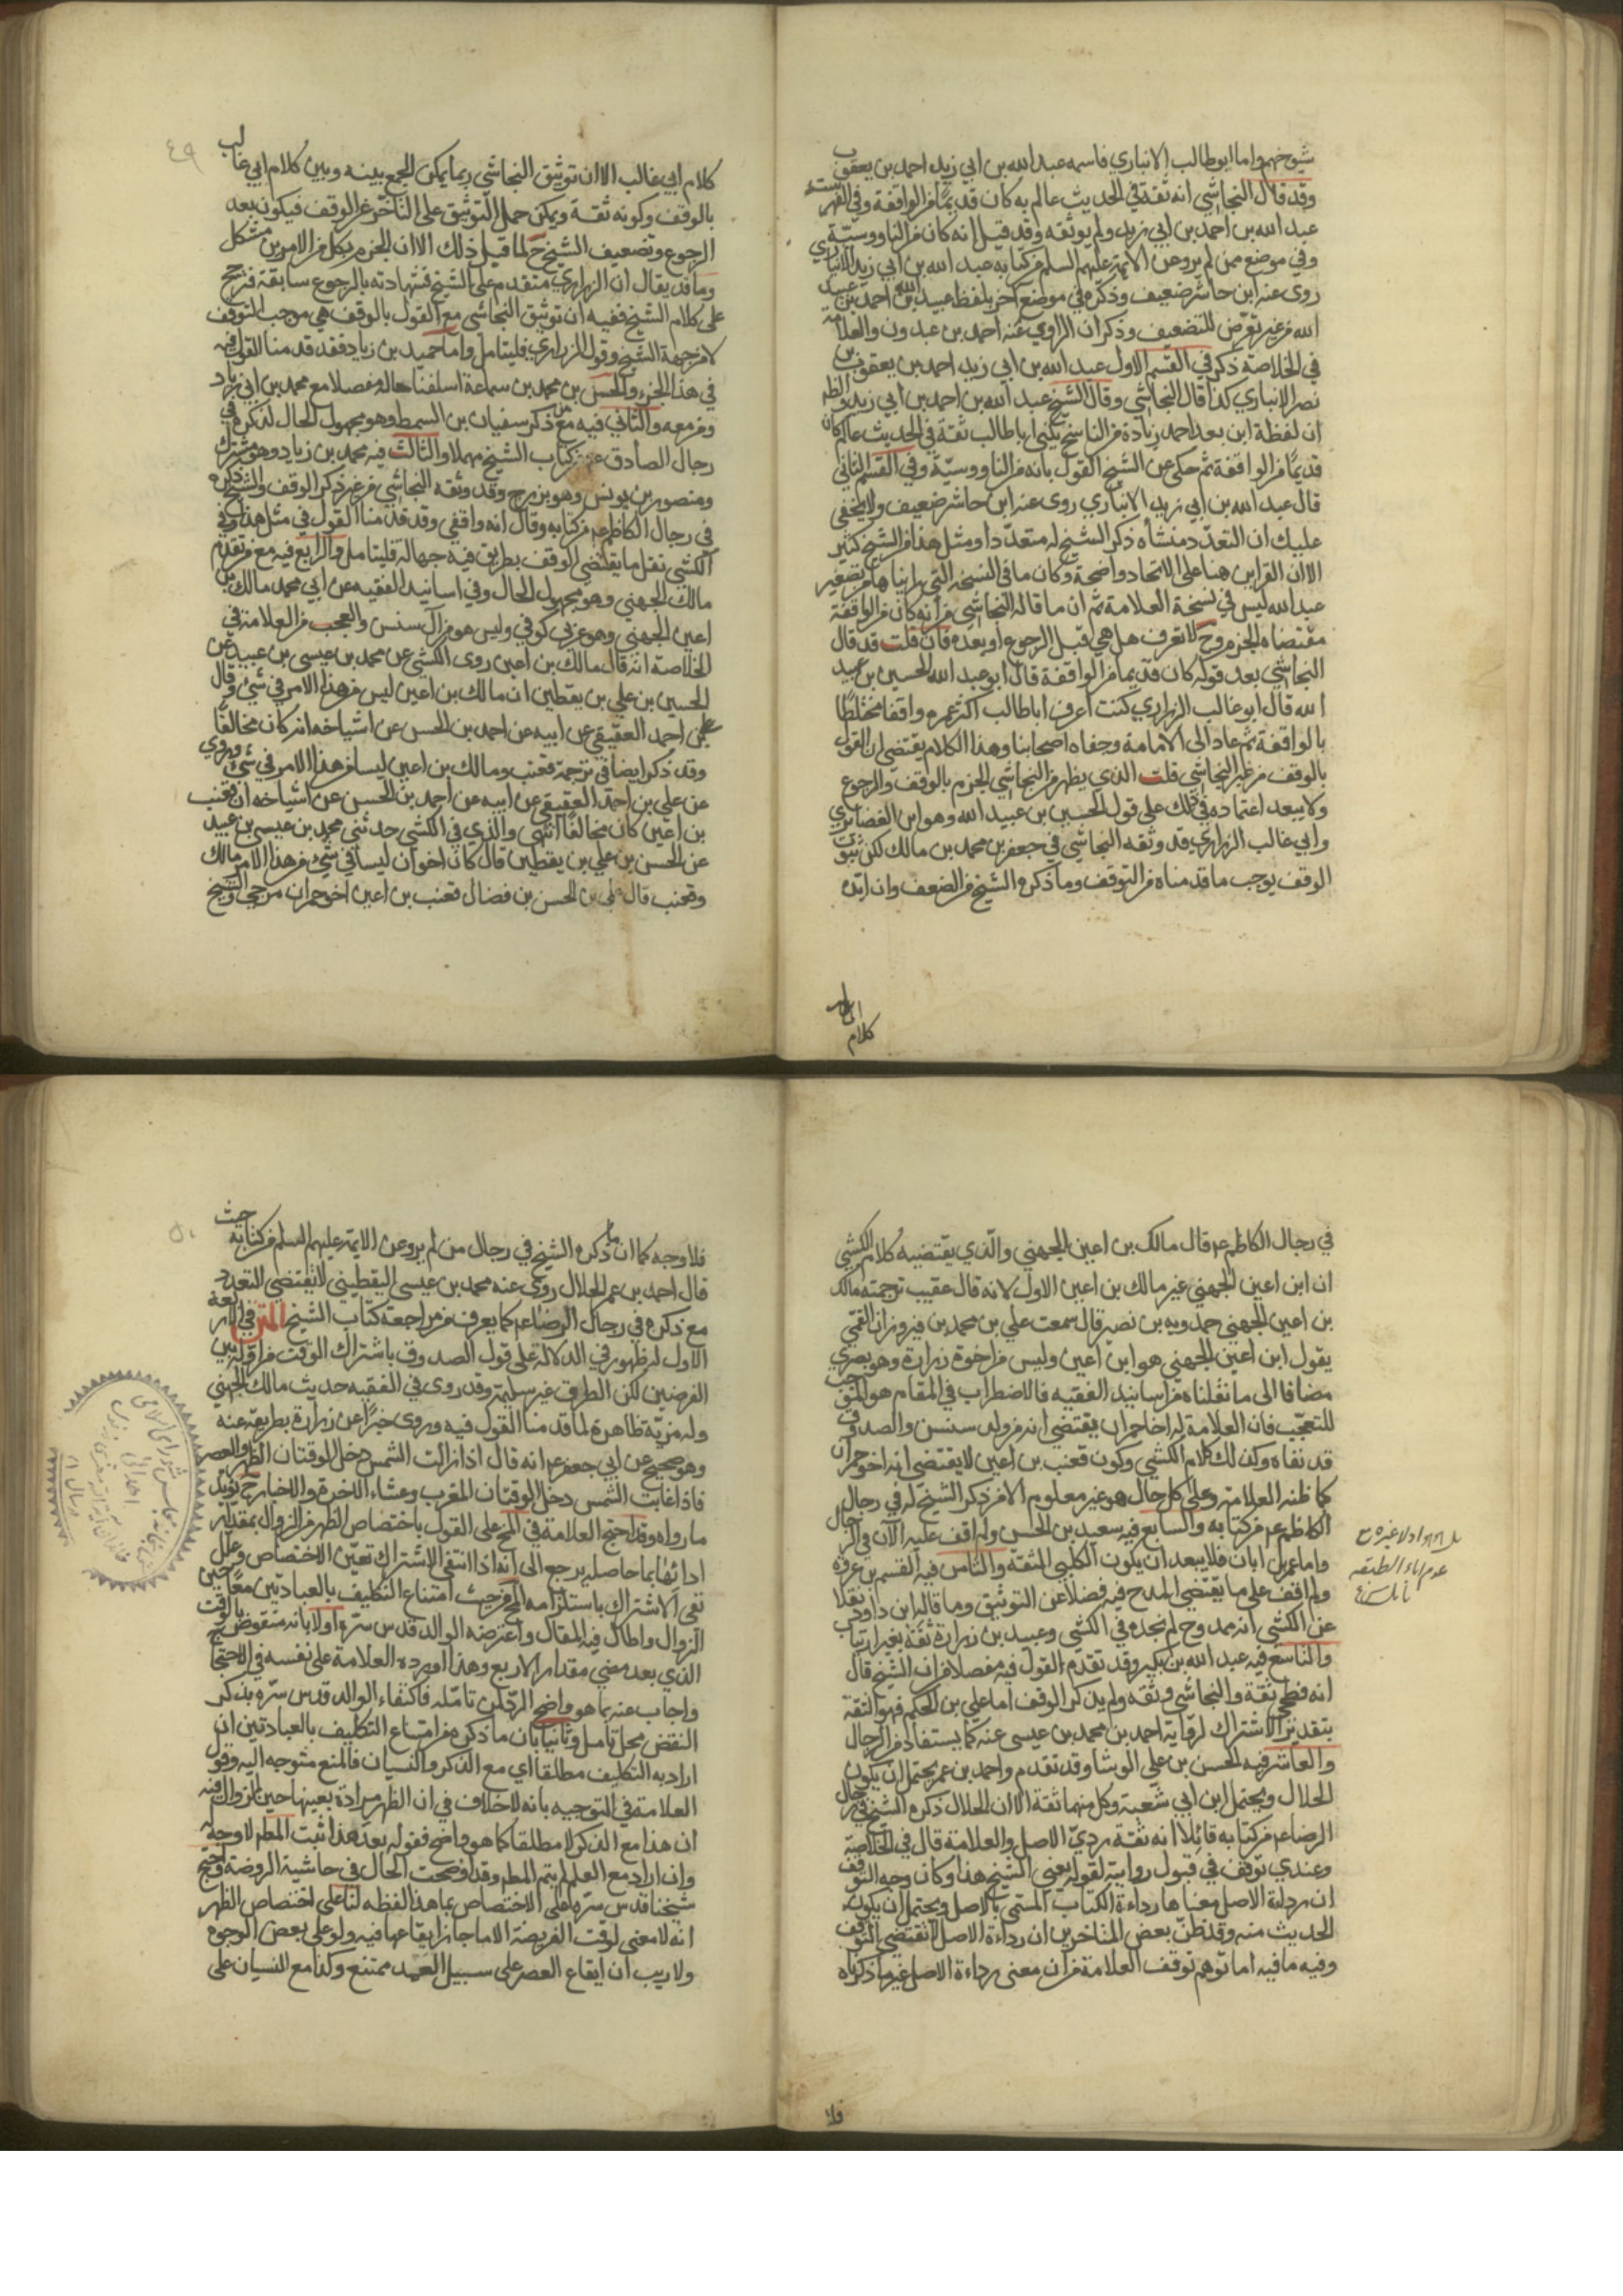 شيوخهم واما ابو طالب الانباري فاسمه عبد الله بن ابي زيد احمد بن يعقوب
وقد قال النجاشي انه ثقة في الحديث عالم به كان قديمًا من الواقفة وفي الفهرست
عبد الله بن احمد بن ابي زيد ولم يوثقه وقد قيل انه كان من الناووسيّة
وفي موضع ممن لم يرو عن الايمة عليهم السلم من كتابه عبد الله بن ابي زيد الانباري
روى عنه ابن حاشر ضعيف وذكره في موضع آخر بلفظ عبيد الله بن احمد بن عبيد
الله من غير تعرّض للتضعيف وذكر ان الراوي عنه احمد بن عبدون والعلامة
في الخلاصة ذكر في القسم الاول عبد الله بن ابي زيد احمد بن يعقوب بن
نصر الانباري كذا قال النجاشي وقال الشيخ عبد الله بن احمد بن ابي زيد والظ
ان لفظة ابن بعد احمد زيادة من الناسخ يكنى اباطالب ثقة في الحديث عالم كان
قديمًا من الواقفة ثم حكى عن الشيخ القول بانه من الناووسيّة وفي القسم الثاني
قال عبد الله بن ابي زيد الانباري روى عنه ابن حاشر ضعيف ولا يخفى
عليك ان التعدّد منشأه ذكر الشيخ له متعدّدا ومثل هذا من الشيخ كثير
الا ان القراين هنا على الاتحاد واضحة وكان ما في النسخة التي رايناها من تصغير
عبد الله ليس في نسخة العلامة ثم ان ما قاله النجاشي من انه كان من الواقفة
مقتضاه الجزم وح لا تعرف هل هي قبل الرجوع او بعده فان قلت قد قال
النجاشي بعد قوله كان قديما من الواقفة قال ابو عبد الله الحسين بن عبيد
الله قال ابو غالب الزراري كنت اعرف اباطالب اكثر عمره واقفا مختلطًا
بالواقفة ثم عاد الى الامامة وجفاه اصحابنا وهذا الكلام يقتضي ان القول
بالوقف من غير النجاشي قلت الذي يظهر من النجاشي الجزم بالوقف والرجوع
ولا يبعد اعتماده في ذلك على قول الحسين بن عبيد الله وهو ابن الغضائري
وابي غالب الزراري قد وثقه النجاشي في جعفر بن محمد بن مالك لكن ثبوت
الوقف يوجب ما قدمناه من التوقف وما ذكره الشيخ من الضعف وان ايّده
كلام
٤٩
كلام ابي غالب الا ان توثيق النجاشي ربما يمكن الجمع بينه وبين كلام ابي غالب
بالوقف وكونه ثقة ويمكن حمل التوثيق على التاخّر عن الوقف فيكون بعد
الرجوع وتضعيف الشيخ ح لما قيل ذلك الا ان الجزم بكل من الامرين مشكل
وما قد يقال ان الزراري متقدم على الشيخ فشهادته بالرجوع سابقة فترجح
على كلام الشيخ ففيه ان توثيق النجاشي مع القول بالوقف هي موجب التوقف
لا من جهة الشيخ وقول الزراري فليتامل واما حميد بن زياد فقد قدمنا القول فيه
في هذا الجزء والحسن بن محمد بن سماعة اسلفنا حاله مفصلا مع محمد بن ابي
ومن معه والثاني فيه مع من ذكر سفيان بن السمط وهو مجهول الحال لذكره في
رجال الصادق ع من كتاب الشيخ مهملا والثالث فيه محمد بن زياد وهو مشترك
ومنصور بن يونس وهو بزرج وقد وثقه النجاشي من غير ذكر الوقف والشيخ ذكره
في رجال الكاظم ع من كتابه وقال انه واقفي وقد قدمنا القول في مثل هذا وفي
الكشي نقل ما يقتضي الوقف بطريق فيه جهالة فليتامل والرابع فيه مع من تقدم
مالك الجهني وهو مجهول الحال وفي اسانيد الفقيه عن ابي محمد مالك بن
اعين الجهني وهو عربي كوفي وليس هو من آل سنسن والعجب من العلامة في
الخلاصة انه قال مالك بن اعين روى الكشي عن محمد بن عيسى بن عبيد عن
الحسين بن علي بن يقطين ان مالك بن اعين ليس من هذا الامر في شئ وقال
علي بن احمد العقيقي عن ابيه عن احمد بن الحسن عن اشياخه انه كان مخالفًا
وقد ذكر ايضا في ترجمة قعنب ومالك بن اعين ليسا من هذا الامر في شئ وروي
عن علي بن احمد العقيقي عن ابيه عن احمد بن الحسن عن اشياخه ان قعنب
بن اعين كان مخالفًا انتهى والذي في الكشي حدثني محمد بن عيسى بن عبيد
عن الحسن بن علي بن يقطين قال كان اخوان ليسا في شئ من هذا الامر مالك
وقعنب قال علي بن الحسن بن فضال قعنب بن اعين اخو حمران مرجئ والشيخ
في رجال الكاظم ع قال مالك بن اعين الجهني والذي يقتضيه كلام الكشي
ان ابن اعين الجهني غير مالك بن اعين الاول لانه قال عقيب ترجمته مالك
بن اعين الجهني حمدويه بن نصير قال سمعت علي بن محمد بن فيروزان القمّي
يقول ابن اعين الجهني هو ابن اعين وليس من اخوة زرارة وهو بصري
مضافا الى ما نقلناه من اسانيد الفقيه فالاضطراب في المقام هو الموجب
للتعجّب فان العلامة له اخا حمران يقتضي انه من ولد سنسن والصدوق
قد نفاه وكذلك كلام الكشي وكون قعنب بن اعين لا يقتضي انه اخو حمران
كما ظنه العلامة وعلى كل حال هو غير معلوم الا من ذكر الشيخ له في رجال
الكاظم ع من كتابه والسابع فيه سعيد بن الحسن ولم اقف عليه الآن في الرجال
واما عمر بن ابان فلا يبعد ان يكون الكلبي الثقة والثامن فيه القسم بن عروة
ولم اقف على ما يقتضي المدح فيه فضلا عن التوثيق وما قاله ابن داود نقلا
عن الكشي انه ممدوح لم نجده في الكشي وعبيد بن زرارة ثقة بغير ارتياب
والتاسع فيه عبد الله بن بكير وقد تقدم القول فيه مفصلا من ان الشيخ قال
انه فطحي ثقة والنجاشي وثقه ولم يذكر الوقف اما علي بن الحكم فهو الثقة
بتقدير الاشتراك لرواية احمد بن محمد بن عيسى عنه كما يستفاد من الرجال
والعاشر فيه الحسن بن علي الوشا وقد تقدم واحمد بن عمر يحتمل ان يكون
الحلال ويحتمل ابن ابي شعبة وكل منهما ثقة الا ان الحلال ذكره الشيخ في رجال
الرضا ع من كتابه قائلا انه ثقة رديّ الاصل والعلامة قال في الخلاصة
وعندي توقف في قبول روايته لقوله يعني الشيخ هذا وكان وجه التوقف
ان رداءة الاصل معناها رداءة الكتاب المسمّى بالاصل ويحتمل ان يكون
الحديث منه وقد ظنّ بعض المتاخرين ان رداءة الاصل لا تقتضي التوقف
وفيه ما فيه اما توهم توقف العلامة من ان معنى رداءة الاصل غير ما ذكرناه
فلا
٥٠
فلا وجه كما ان ما ذكره الشيخ في رجال من لم يرو عن الايمة عليهم السلم من كتابه حيث
قال احمد بن عمر الحلال روى عنه محمد بن عيسى اليقطيني لا يقتضي التعدد
مع ذكره في رجال الرضا ع كما يعرف من مراجعة كتاب الشيخ المتن في الاربعة
الاول له ظهور في الدلالة على قول الصدوق باشتراك الوقت من اوله بين
الفرضين لكن الطرق غير سليمة وقد روى في الفقيه حديث مالك الجهني
وله مزيّة ظاهرة لما قدمنا القول فيه وروى خبرًا عن زرارة بطريقه عنه
وهو صحيح عن ابي جعفر ع انه قال اذا زالت الشمس دخل الوقتان الظهر والعصر
فاذا غابت الشمس دخل الوقتان المغرب وعشاء الاخرة والاخبار ح تؤيّد
ما رواه وقد احتج العلامة في المخ على القول باختصاص الظهر من الزوال بمقدار
ادائها بما حاصله يرجع الى انه اذا انتفى الاشتراك تعيّن الاختصاص وعلّل
نفي الاشتراك باستلزامه المح من حيث امتناع التكليف بالعبادتين معًا حين
الزوال واطال فيه المقال واعترضه الوالد قدس سرّه اولا بانه منقوض بالوقت
الذي بعد مضي مقدار الاربع وهذا اورده العلامة على نفسه في الاحتجاج
واجاب عنه بما هو واضح الردّ لمن تامّله فاكتفاء الوالد قدس سرّه بذكر
النقض محل تامل وثانيا بان ما ذكره من امتناع التكليف بالعبادتين ان
اراد به التكليف مطلقا اي مع الذكر والنسيان فالمنع متوجه اليه وقول
العلامة في التوجيه بانه لا خلاف في ان الظهر مرادة بعينها حين الزوال فيه
ان هذا مع الذكر لا مطلقا كما هو واضح فقوله بعد هذا ثبت المط لا وجه له
وان اراد مع العلم لم يتم المط وقد اوضحت الحال في حاشية الروضة واحتج
شيخنا قدس سرّه على الاختصاص بما هذا لفظه لنا على اختصاص الظهر
انه لا معنى لوقت الفريضة الا ما جاز ايقاعها فيه ولو على بعض الوجوه
ولا ريب ان ايقاع العصر على سبيل العمد ممتنع وكذا مع النسيان على